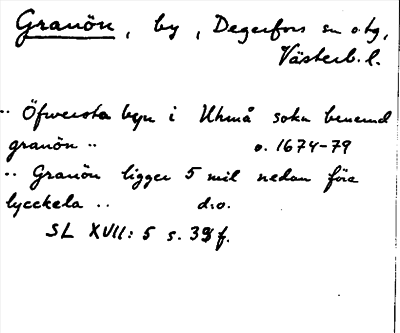 Granön, by, Degerfors sn o. tg,
Västerb. l.
.. Öfwersta byn i Uhmå sokn benemd
granön .. o. 1674-79
.. Granön ligger 5 mil nedan före
lyckela .. d:o.
SL XVII: 5 s. 39 f.